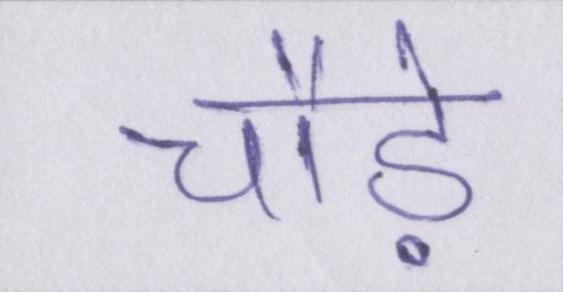 चौड़े